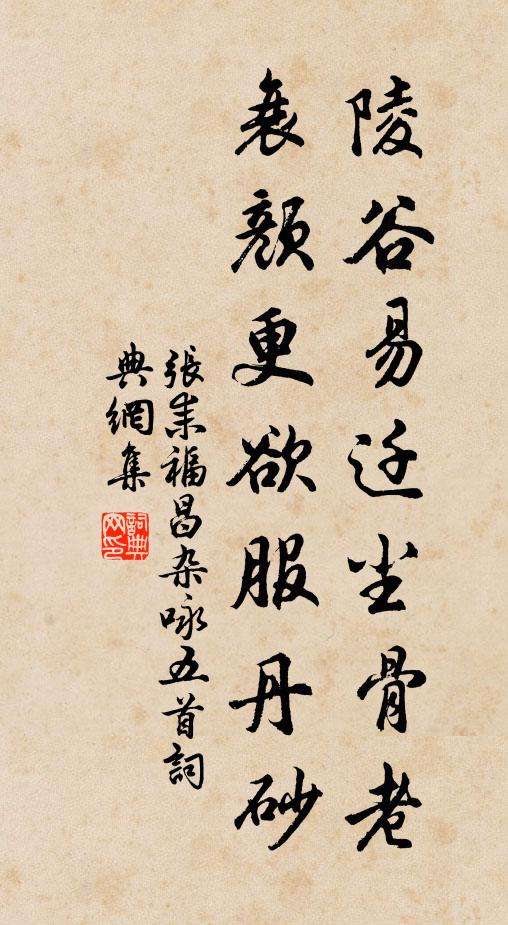 陵谷易迁尘骨老
衰颜更欲服丹砂
張耒福昌杂咏五首詞
典網集
詞典
网印